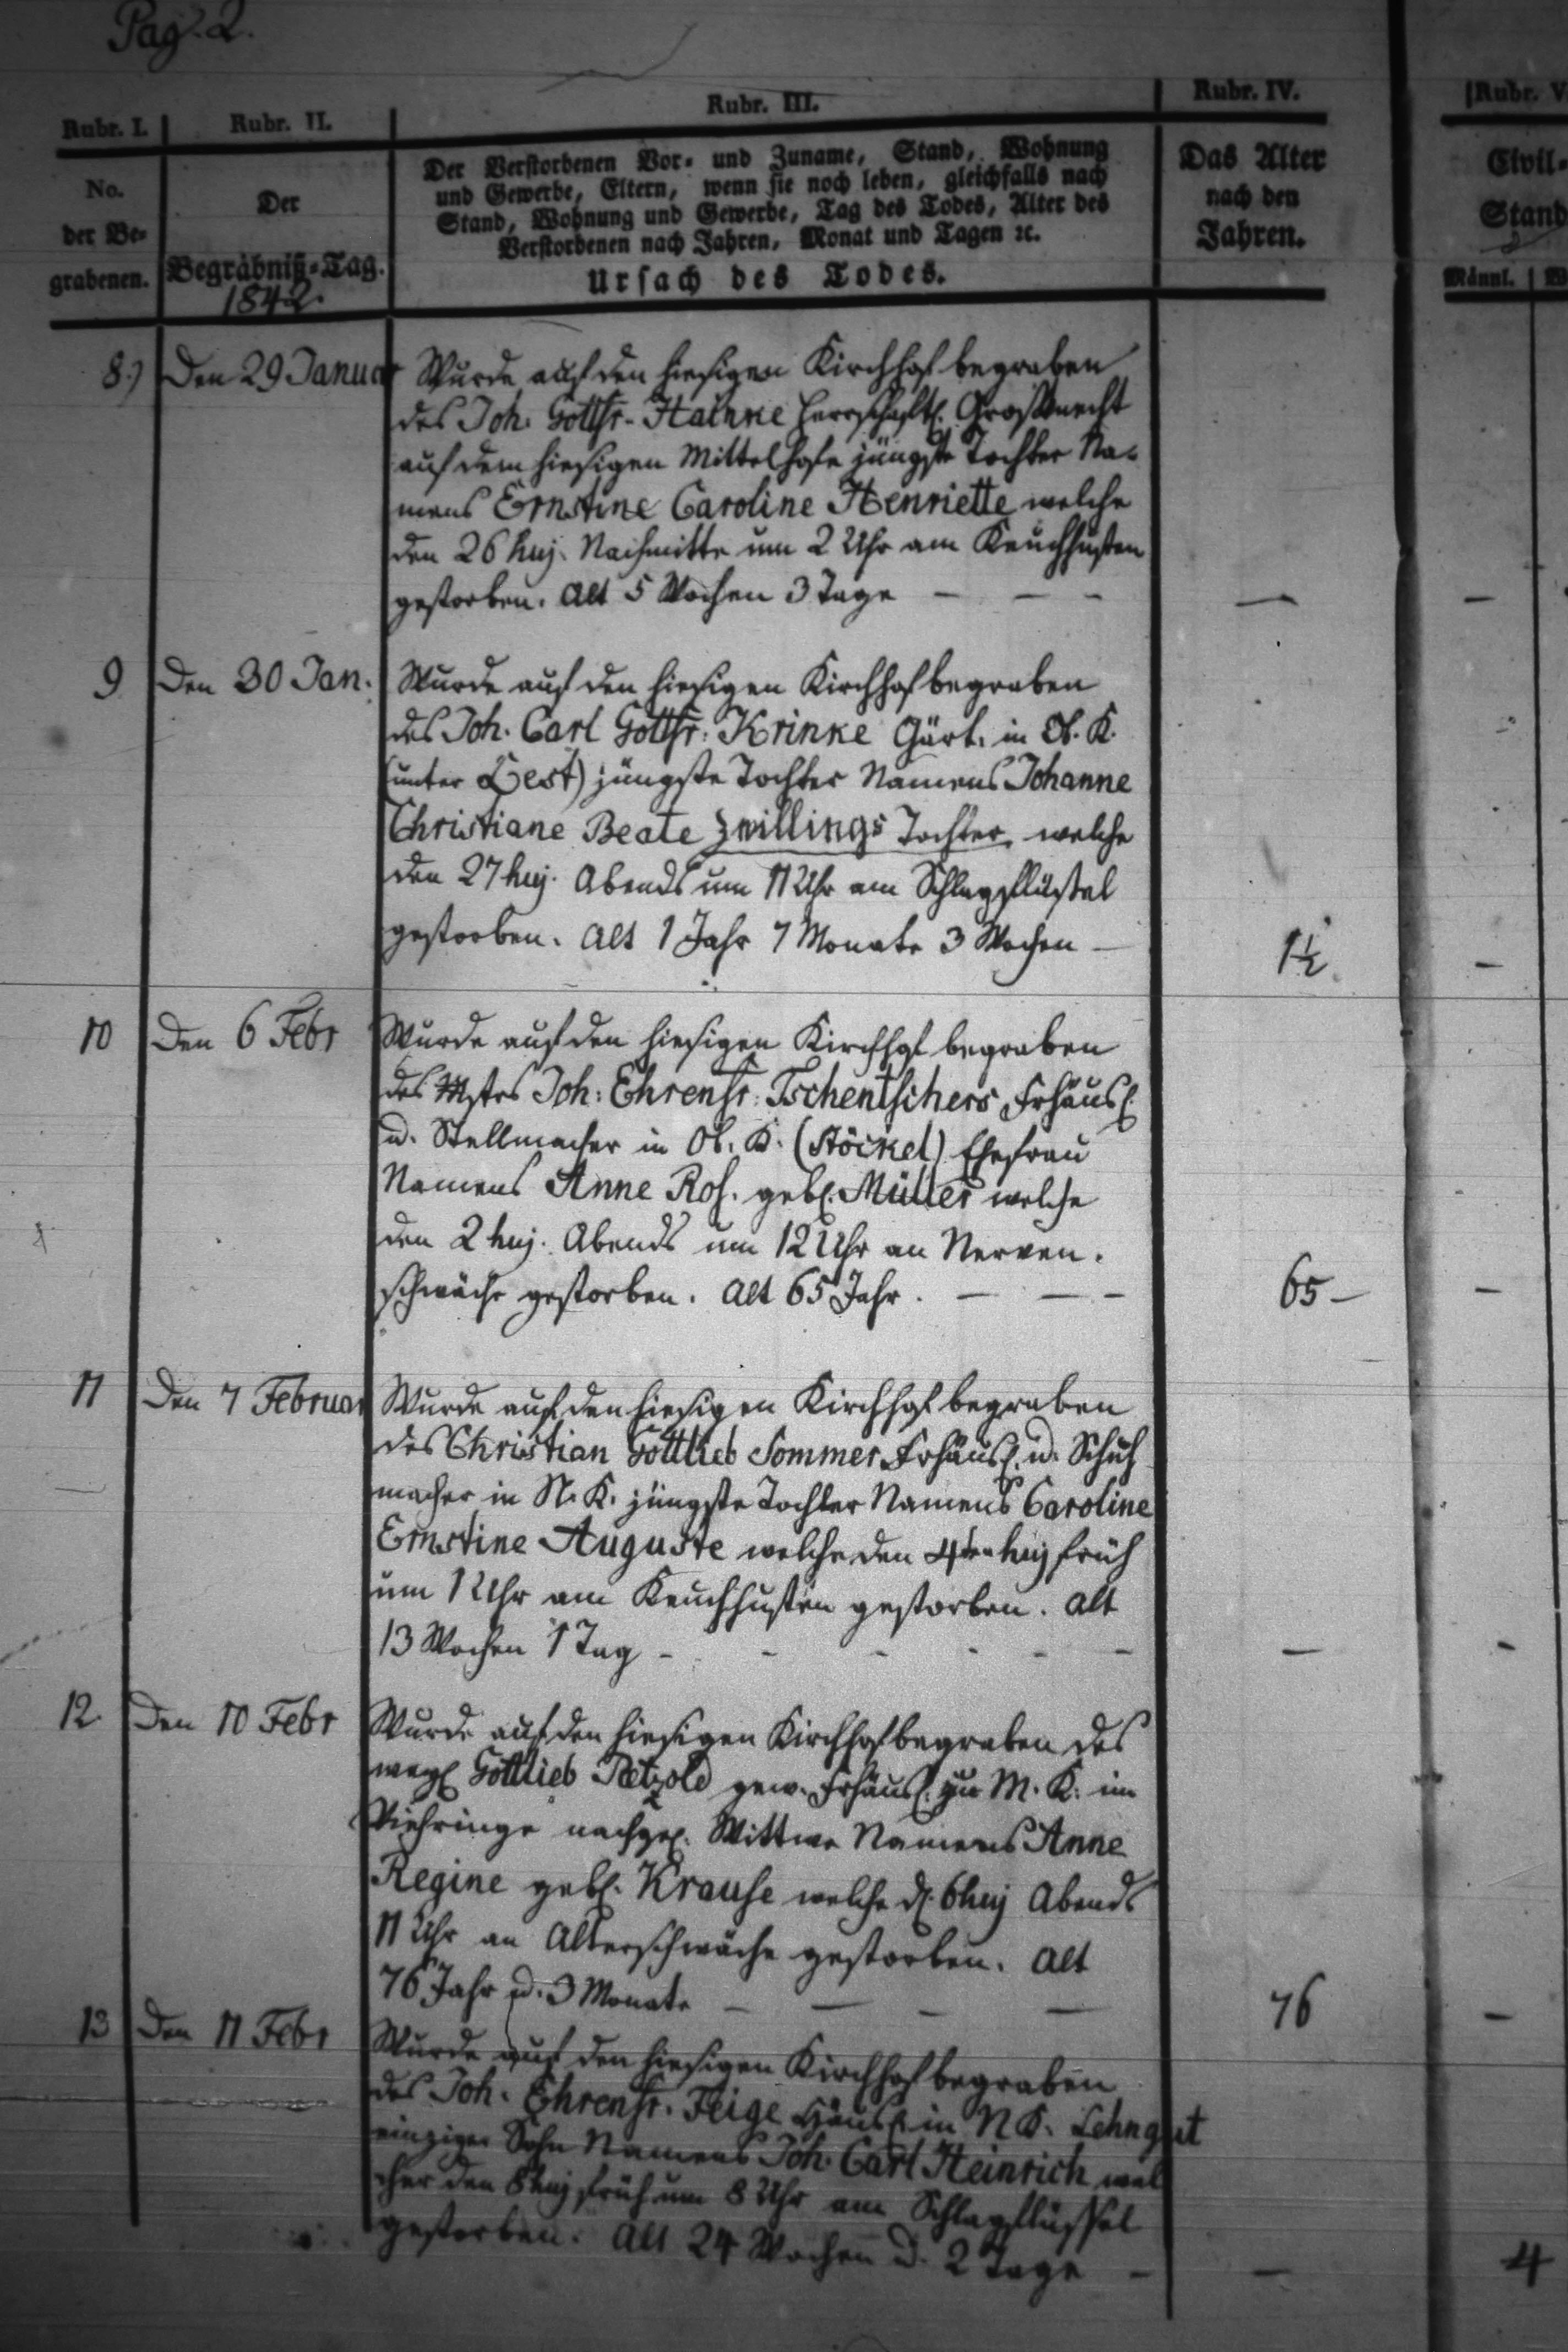 Pag. 2.
Rubr. I.
Rubr. II.
Rubr. III.
Rubr. IV.
Rubr. V
No.
der Be-
grabenen.
Der
Begräbniß-Tag.
1842.
Der Verstorbenen Vor- und Zuname, Stand, Wohnung
und Gewerbe, Eltern, wenn sie noch leben, gleichfalls nach
Stand, Wohnung und Gewerbe, Tag des Todes, Alter des
Verstorbenen nach Jahren, Monat und Tagen ꝛc.
Ursach des Todes.
Das Alter
nach den
Jahren.
Civil-
Stand
Männl.
8.) Den 29 Januar Wurde auf den hiesigen Kirchhof begraben
des Joh. Gottfr. Hainke herrschaftl. Großknecht
auf dem hiesigen Mittelhofe jüngste Tochter Na-
mens Ernstine Caroline Henriette welche
den 26 huj. Nachmitts um 2 Uhr am Keuchhusten
gestorben. Alt 5 Wochen 3 Tage — — — — —
9 Den 30 Jan. Wurde auf den hiesigen Kirchhof begraben
des Joh. Carl Gottfr. Krinke Gärt. in Ob. K.
(unter Lest) jüngste Tochter Namens Johanne
Christiane Beate Zwillings Tochter, welche
den 27 huj. Abends um 11 Uhr am Schlagflüssel
gestorben. Alt 1 Jahr 7 Monate 3 Wochen — 1½ —
10 Den 6 Febr Wurde auf den hiesigen Kirchhof begraben
des Mstrs Joh: Ehrenfr: Tschentschers Frhäusl.
u. Stellmacher in Ob. K. (Stöckel) Ehefrau
Namens Anne Ros. gebl. Müller welche
den 2 huj. Abends um 12 Uhr an Nerven-
schwäche gestorben. Alt 65 Jahr. — — — 65 — —
11 Den 7 Februar Wurde auf den hiesigen Kirchhof begraben
des Christian Gottlieb Sommer Frhäusl. u. Schuh
macher in N. K. jüngste Tochter Namens Caroline
Ernstine Auguste welche den 4ten huj früh
um 1 Uhr am Keuchhusten gestorben. Alt
13 Wochen 1 Tag - - - - - — — -
12. Den 10 Febr Wurde auf den hiesigen Kirchhof begraben des
weyl Gottlieb Petzold gew. Frhäusl. zu M. K. im
Viehringe nachgel. Wittwe Namens Anne
Regine gebl. Krause welche d. 6 huj Abends
11 Uhr an Altersschwäche gestorben. Alt
76 Jahr u. 3 Monate — — — — 76 —
13 Den 11 Febr Wurde auf den hiesigen Kirchhof begraben
des Joh. Ehrenfr. Feige Häusl. in N K. Lehngut
einziger Sohn Namens Joh. Carl Heinrich wel
cher den 8 huj früh um 8 Uhr am Schlagflüssel
gestorben. Alt 24 Wochen u. 2 Tage — — 4